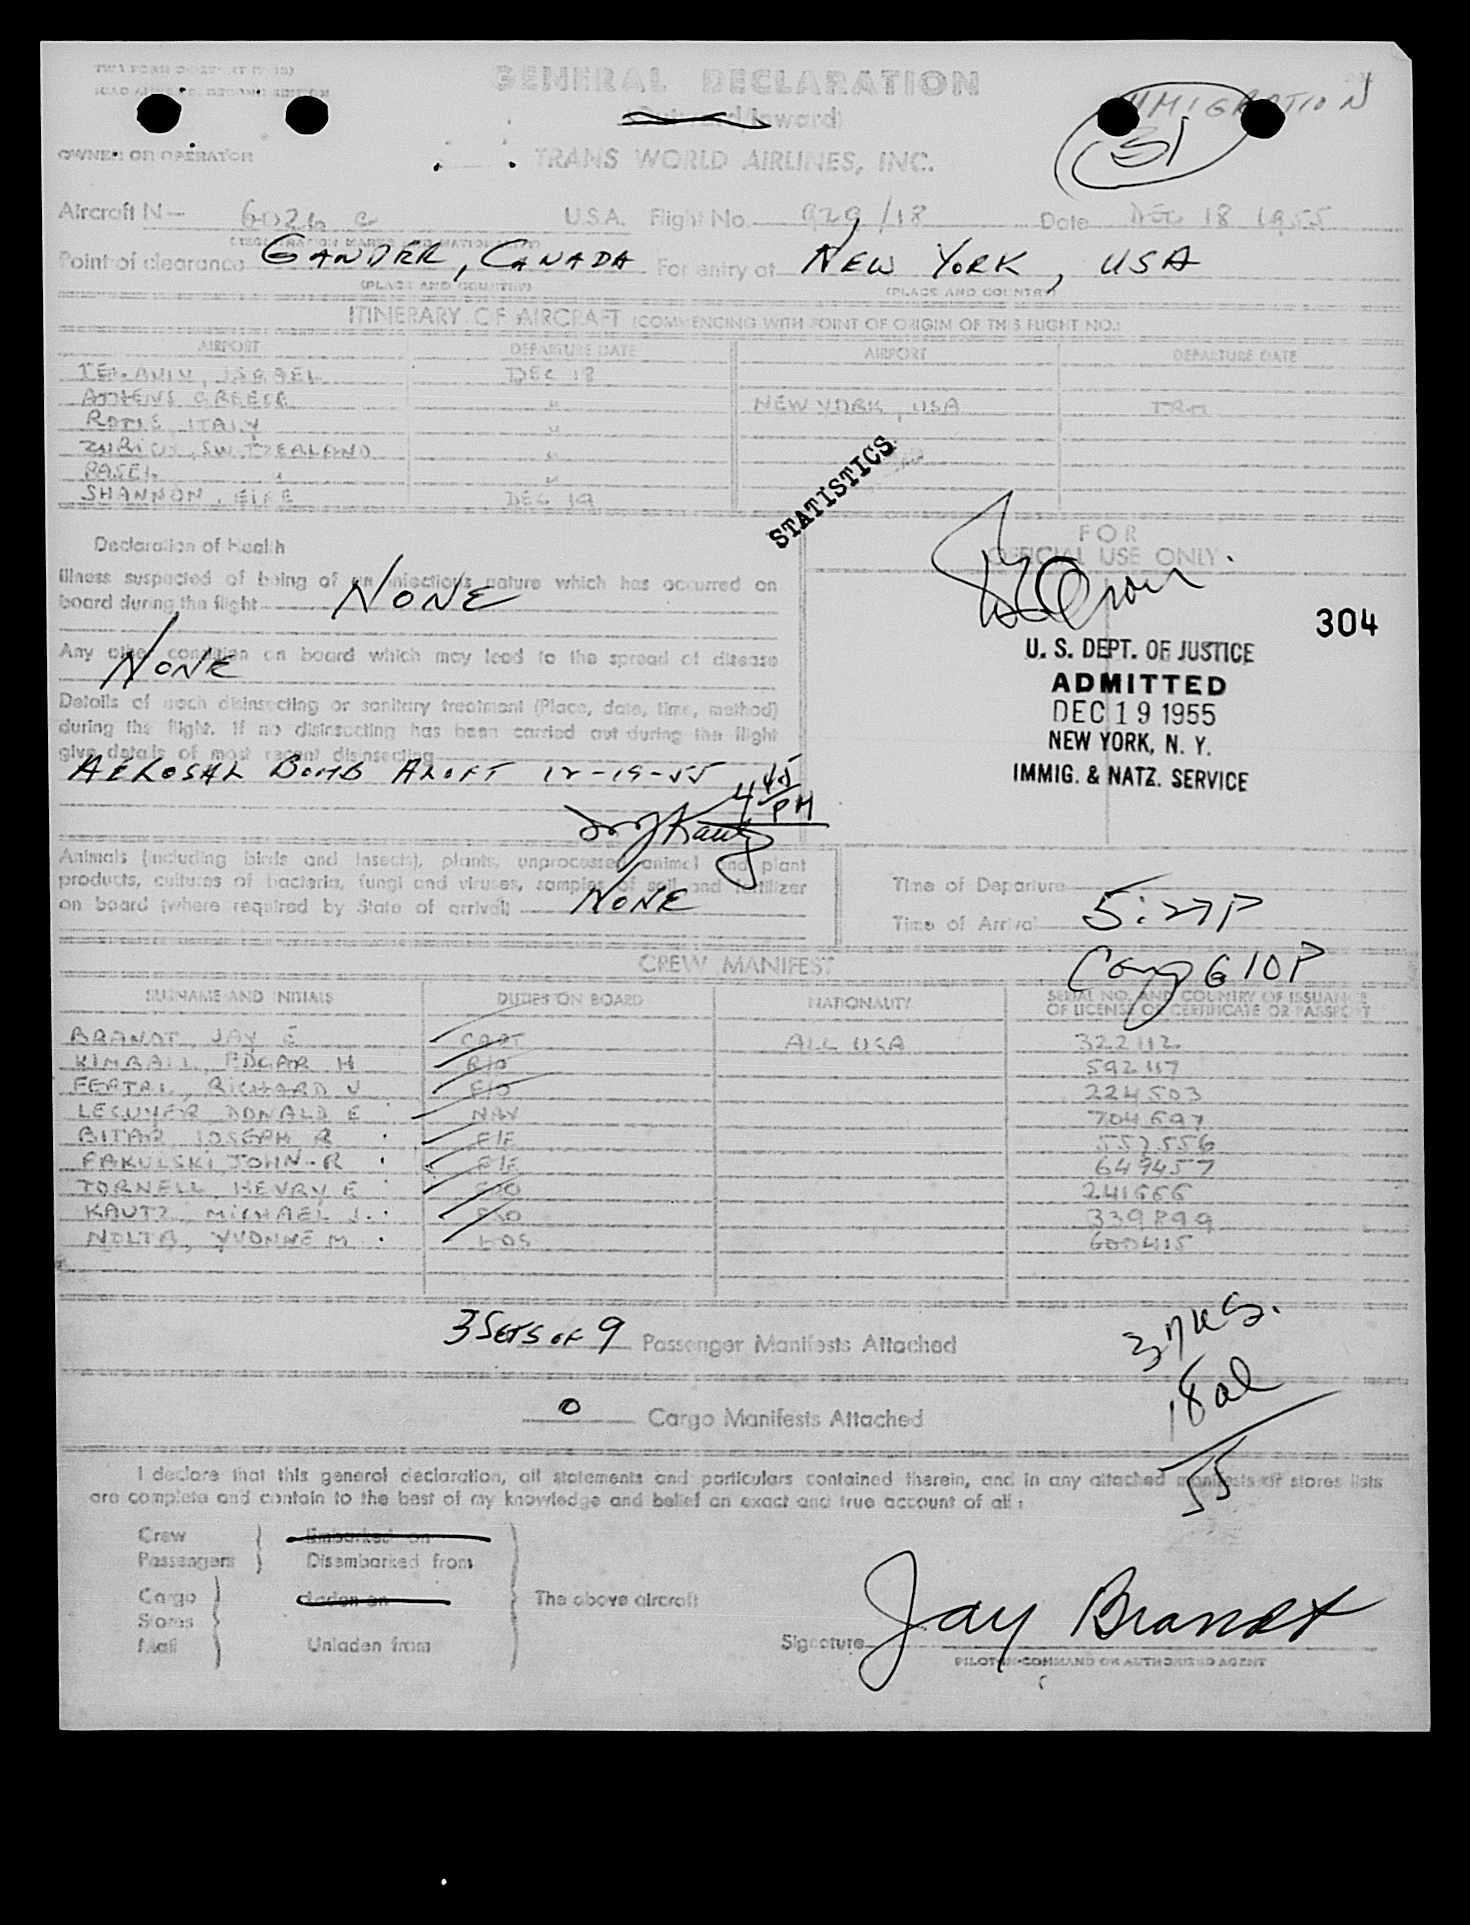 GENERAL DECLARATION
(Outward/Inward)
IMMIGRATION
31
OWNER OR OPERATOR
TRANS WORLD AIRLINES, INC.
Aircraft N— 6026 C U.S.A. Flight No. 929/18 Date DEC 18 1955
(REGISTRATION MARKS AND NATIONALITY)
Point of clearance GANDER, CANADA For entry at NEW YORK, USA
(PLACE AND COUNTRY) (PLACE AND COUNTRY)
ITINERARY OF AIRCRAFT (COMMENCING WITH POINT OF ORIGIN OF THIS FLIGHT NO.)
AIRPORT DEPARTURE DATE AIRPORT DEPARTURE DATE
ISRAEL DEC 18
ATHENS GREECE " NEW YORK, USA TRM
ROME, ITALY "
ZURICH, SWITZERLAND "
BASEL " "
SHANNON, EIRE DEC 19
STATISTICS
Declaration of Health
FOR
OFFICIAL USE ONLY
Illness suspected of being of an infectious nature which has occurred on
board during the flight NONE
304
Any other condition on board which may lead to the spread of disease
NONE
U. S. DEPT. OF JUSTICE
ADMITTED
DEC 19 1955
NEW YORK, N. Y.
IMMIG. & NATZ. SERVICE
Details of each disinsecting or sanitary treatment (Place, date, time, method)
during the flight. If no disinsecting has been carried out during the flight
give details of most recent disinsecting
AEROSAL BOMB ALOFT 12-19-55 445 PM
Animals (including birds and insects), plants, unprocessed animal and plant
products, cultures of bacteria, fungi and viruses, samples of soil and fertilizer
on board (where required by State of arrival) NONE
Time of Departure
Time of Arrival 5:27P
610P
CREW MANIFEST
SURNAME AND INITIALS DUTIES ON BOARD NATIONALITY SERIAL NO. AND COUNTRY OF ISSUANCE
OF LICENSE OR CERTIFICATE OR PASSPORT
BRANDT, JAY E CAPT ALL USA 322112
KIMBALL, EDGAR H F/O 592117
RICHARD V F/O 224503
LECUYER DONALD E NAV 704697
BITAR JOSEPH R F/E 557556
PAKULSKI, JOHN R F/E 649457
TORNELL HENRY E 241666
KAUTZ, MICHAEL J. 339899
YVONNE M HOS 600415
3 SETS OF 9 Passenger Manifests Attached
37 US.
0 Cargo Manifests Attached
18 al
55
I declare that this general declaration, all statements and particulars contained therein, and in any attached manifests or stores lists
are complete and contain to the best of my knowledge and belief an exact and true account of all:
Crew Embarked on
Passengers Disembarked from
Cargo Laden on The above aircraft
Stores
Mail Unladen from
Signature Jay Brandt
PILOT-IN-COMMAND OR AUTHORIZED AGENT